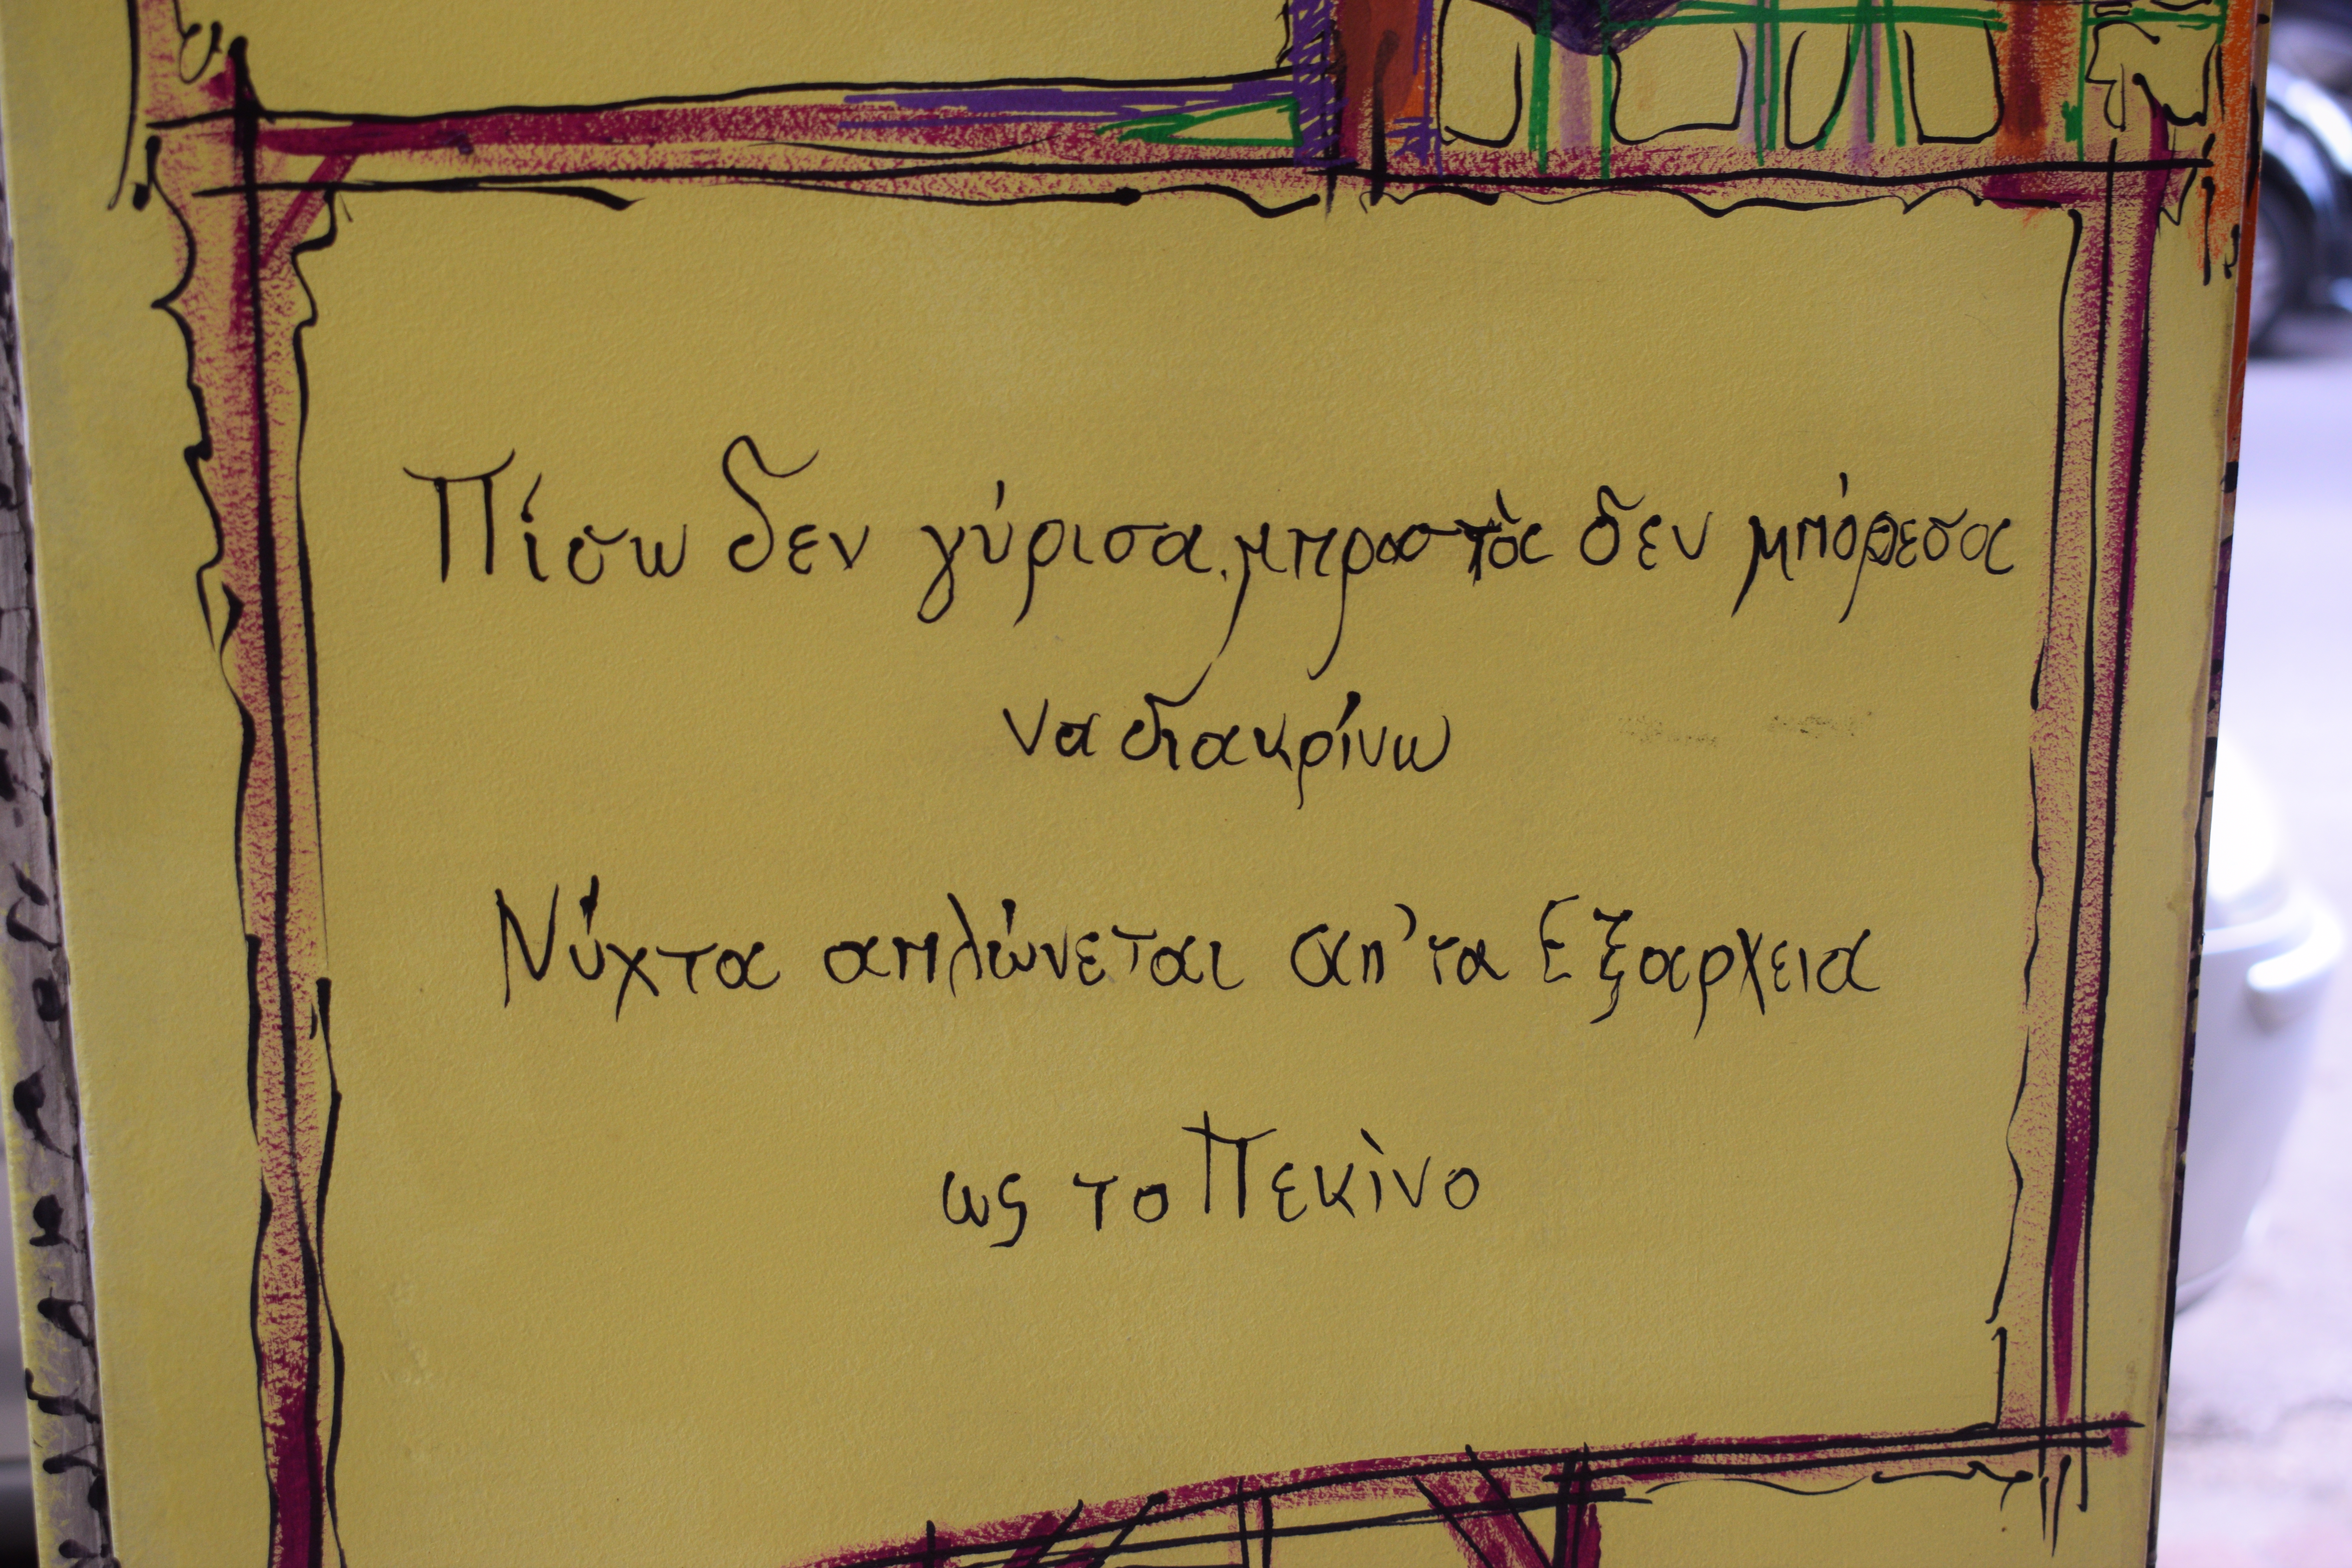 Πίσω δεν γύρισα, μπροστὰ δεν μπόρεσα
να διακρίνω
Νύχτα απλώνεται απ' τα Εξαρχεια
ως το Πεκὶνο